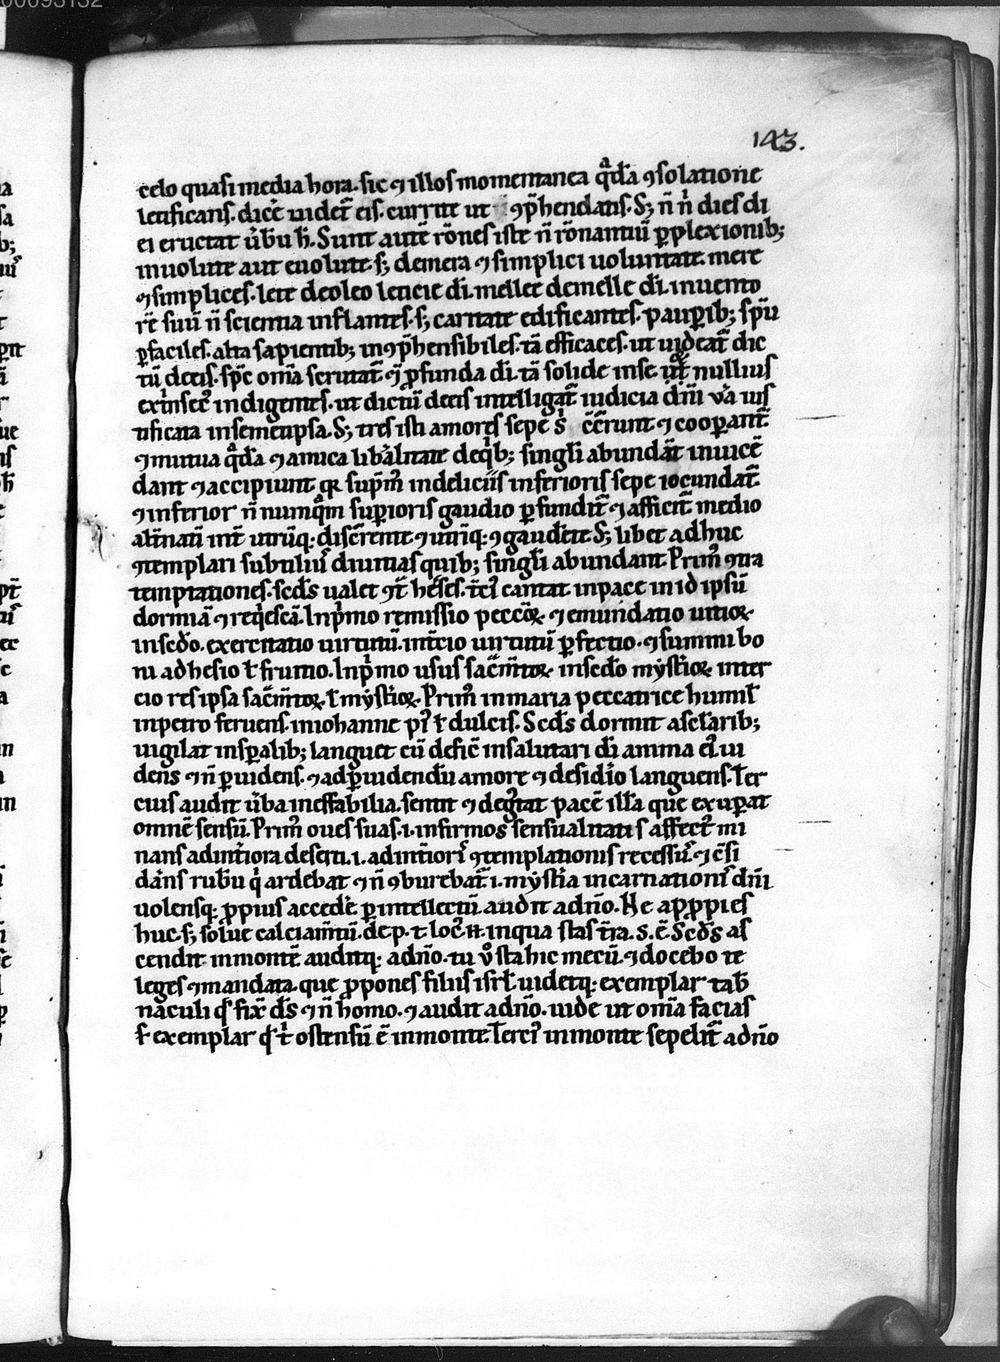 00093132
143.
celo quasi media hora. sic ⁊ illos momentanea q̃dā ꝯsolatione
letificans. dicẽ uidet̃ eis. currite ut ꝯp̃hendatis. S; ñ ñ dies di
ei eructat u̾bũ h̃. Sunt autẽ rõnes iste ñ rõnantiũ ꝑplexionib;
inuolute aut euolute. s; de mera ⁊ simplici uoluntate mere
⁊ simplices. lete de oleo leticie di. mellee de melle di. inuento
r̃e suũ ñ scientia inflantes. s; caritate edificantes. pauꝑib; spũ
ꝑfaciles. alta sapientib; inꝯp̃hensibiles. tã efficaces. ut uideat̃ dic
tũ de eis. spc̃ om̃a scrutat̃ ⁊ ꝓfunda di. tã solide in se ut nullius
extinsec̾ indigentes. ut dictũ de eis intelligat̃ iudicia dñi ua̾ ius
tificata in semetipsa. S; tres isti amores sepe s̾ cc̃runt ⁊ cooꝑant̃
⁊ mutua q̃dã ⁊ amica lib̾alitate de q̾b; singli abundãt inuicẽ
dant ⁊ accipiunt qꝛ sup̃m̾ in deliciis inferioris sepe iocundat̃
⁊ inferior ñ numq̃m suꝑioris gaudio ꝑfundit̃ ⁊ afficit̃ medio
alt̃natũ int̃ utrũq: discr̃ente ⁊ utriq: ꝯgaudete S; libet adhuc
ꝯtemplari subtiliu̾ diuitias quib; singli abundant. Prim̾ ꝯtra
temptationes. scd̾s ualet ꝯt̃ hẽses. tẽ̾ cantat in pace in id ipsũ
dormiã ⁊ req̾escã. In p̾mo remissio peccõꝝ. ⁊ emundatio uitioꝝ.
in sedo. exercitatio uirtutũ. in tc̃io uirtutũ ꝑfectio. ⁊ summi bo
ni adhesio ł fruitio. In p̾mo usus sac̃m̃toꝝ in sedo myst̃ioꝝ in ter
cio res ipsa sac̃m̃toꝝ. ł myst̃ioꝝ. Prim̾ in maria peccatrice humil̃
in petro feruens. in iohanne pi̾ ł dulcis. Scds dormit a sclarib;
uigilat in spalib; languet cũ defic̃ in salutari di anima ei̾ ui
dens ⁊ ñ ꝑuidens. ⁊ ad ꝑuidendũ amore ⁊ desid̾io languens. Ter
cius audit u̾ba ineffabilia. sentit ⁊ degustat pacẽ illã que exuꝑat
omnẽ sensũ. Prim̾ oues suas .i. infirmos sensualitatis affect̾ mi
nans ad int̾iora deserti. i. ad int̾iori̾ ꝯtemplationis recessũ. ⁊ c̃si
dãns rubũ q̾ ardebat ⁊ ñ ꝯburebat̃ .i. myst̾ia incarnationis dñi
uolensq: ꝓpius accede̾ ꝑ intellectũ. audit ad ño. Ne apꝓpies
huc. s; solue calciam̃tũ. de p. t. loc̾ .n. in qua stas tr̃a. s. ẽ. Scd̾s as
cendit in montẽ auditq: ad ño. tu u̾ sta hic mecũ ⁊ docebo te
leges ⁊ mandata. que ꝓpones filiis isrł. uidetq: exemplar tab̃
naculi q̾ fix̃ ds ⁊ ñ homo. ⁊ audit ad ño. uide ut om̃a facias
s̃ exemplar q̾ t̾ ostensũ ẽ in monte. Terci̾ in monte sepelit̃ ad ño